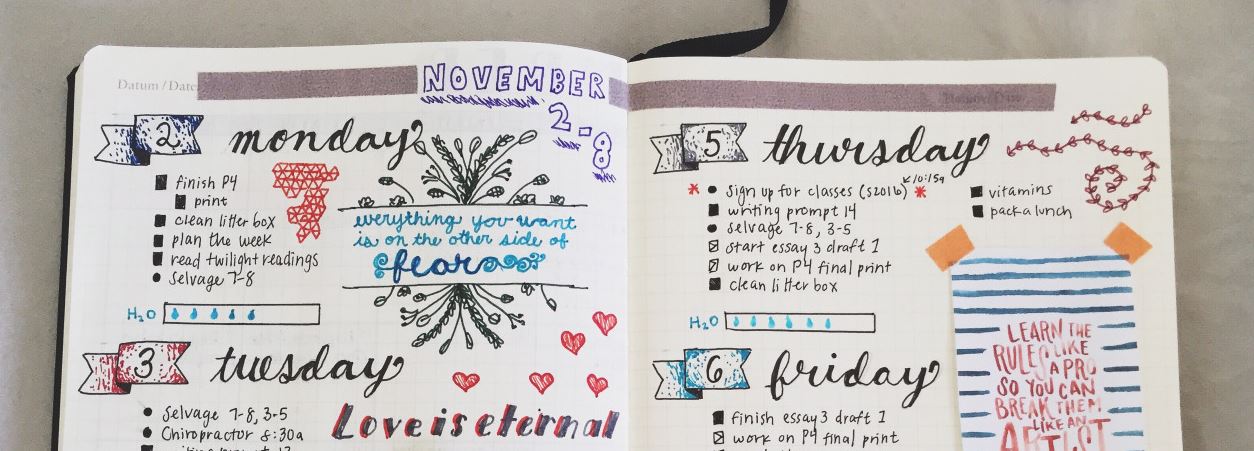 Datum / Date
NOVEMBER
2-8
2 monday
finish P4
print
clean litter box
plan the week
read twilight readings
Selvage 7-8
H₂O
everything you want
is on the other side of
fear
3 tuesday
Selvage 7-8, 3-5
Chiropractor 8:30a
Love is eternal
5 thursday
sign up for classes (S2016) 10:15a
writing prompt 14
selvage 7-8, 3-5
start essay 3 draft 1
work on P4 final print
clean litter box
vitamins
pack a lunch
H₂O
6 friday
finish essay 3 draft 1
work on P4 final print
LEARN THE
RULES LIKE
A PRO
SO YOU CAN
BREAK THEM
LIKE AN
ARTIST